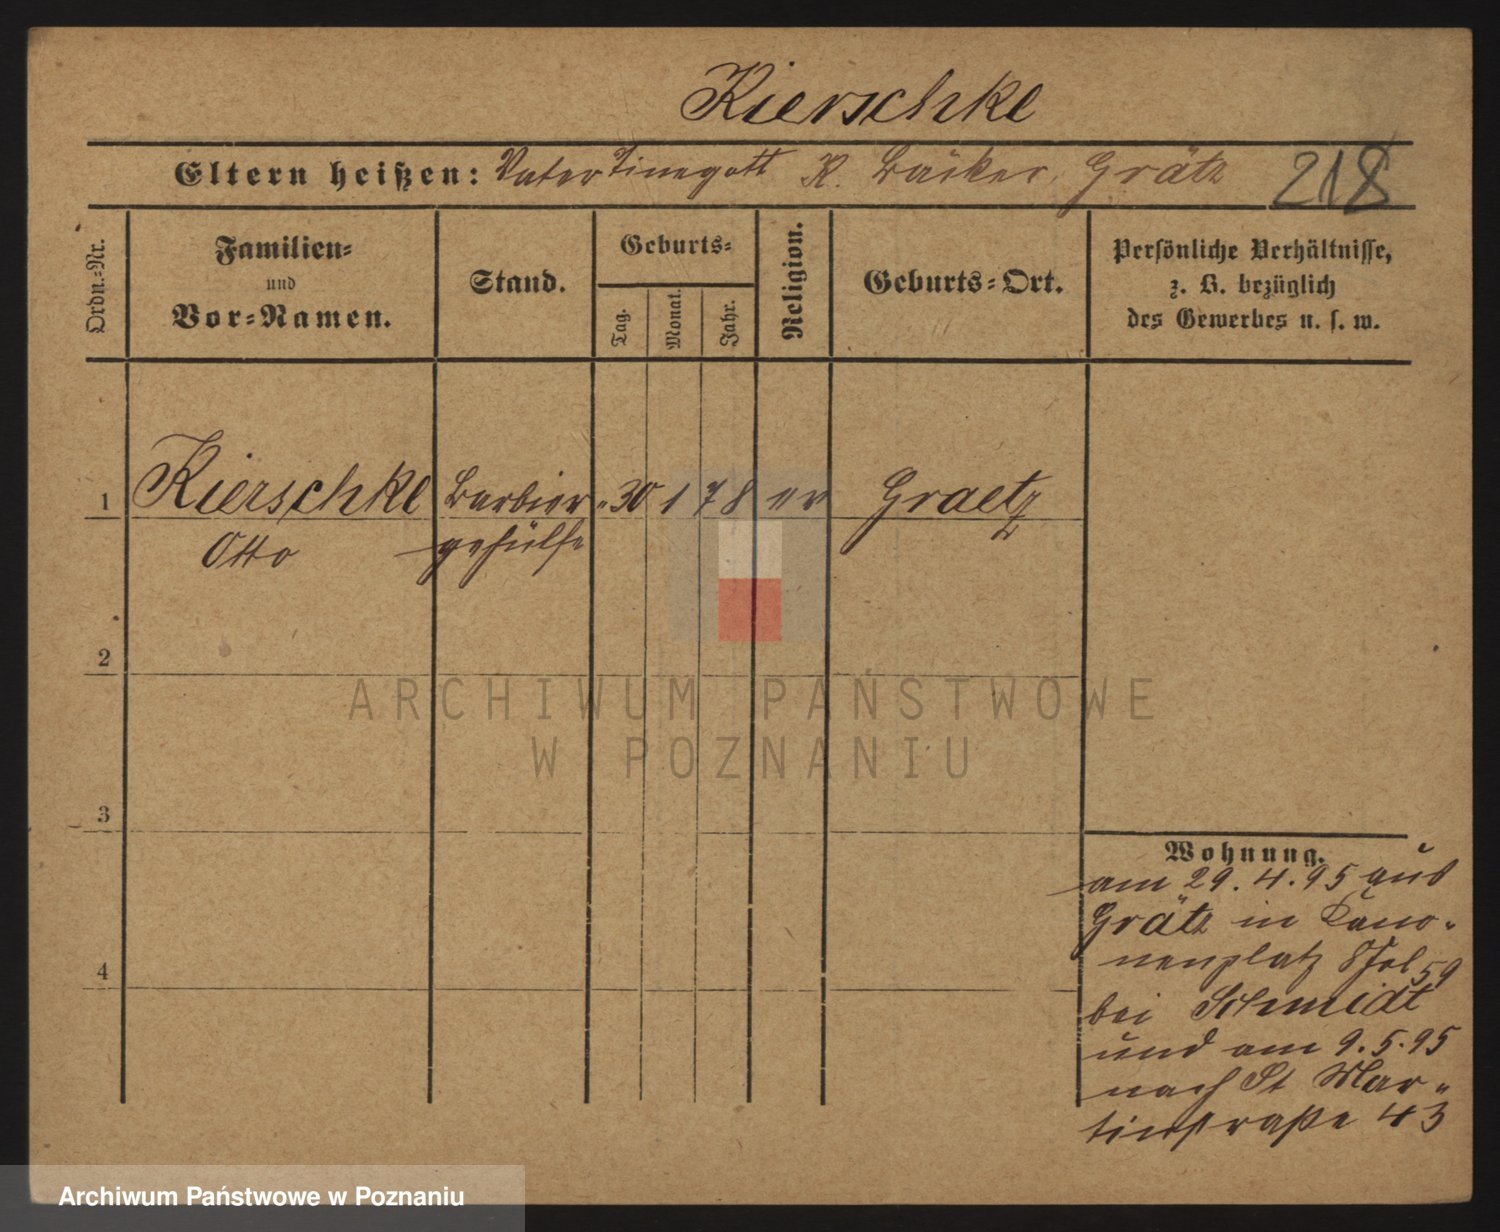 Kierschke
Eltern heißen: Vater Tinegott K. Bäcker, Grätz 218
Ordn.-Nr.
Familien-
und
Vor-Namen.
Stand.
Geburts-
Tag.
Monat.
Jahr.
Religion.
Geburts-Ort.
Persönliche Verhältnisse,
z. B. bezüglich
des Gewerbes u. s. w.
1 Kierschke Barbier- 30 1 78 ev Graetz
Otto gehülfe
2
3
4
Wohnung.
am 29.4.95 aus
Grätz in Kano-
nenplatz 8 Fol 59
bei Schmidt
und am 9.5.95
nach St Mar-
tinstraße 43
ARCHIWUM PAŃSTWOWE
W POZNANIU
Archiwum Państwowe w Poznaniu